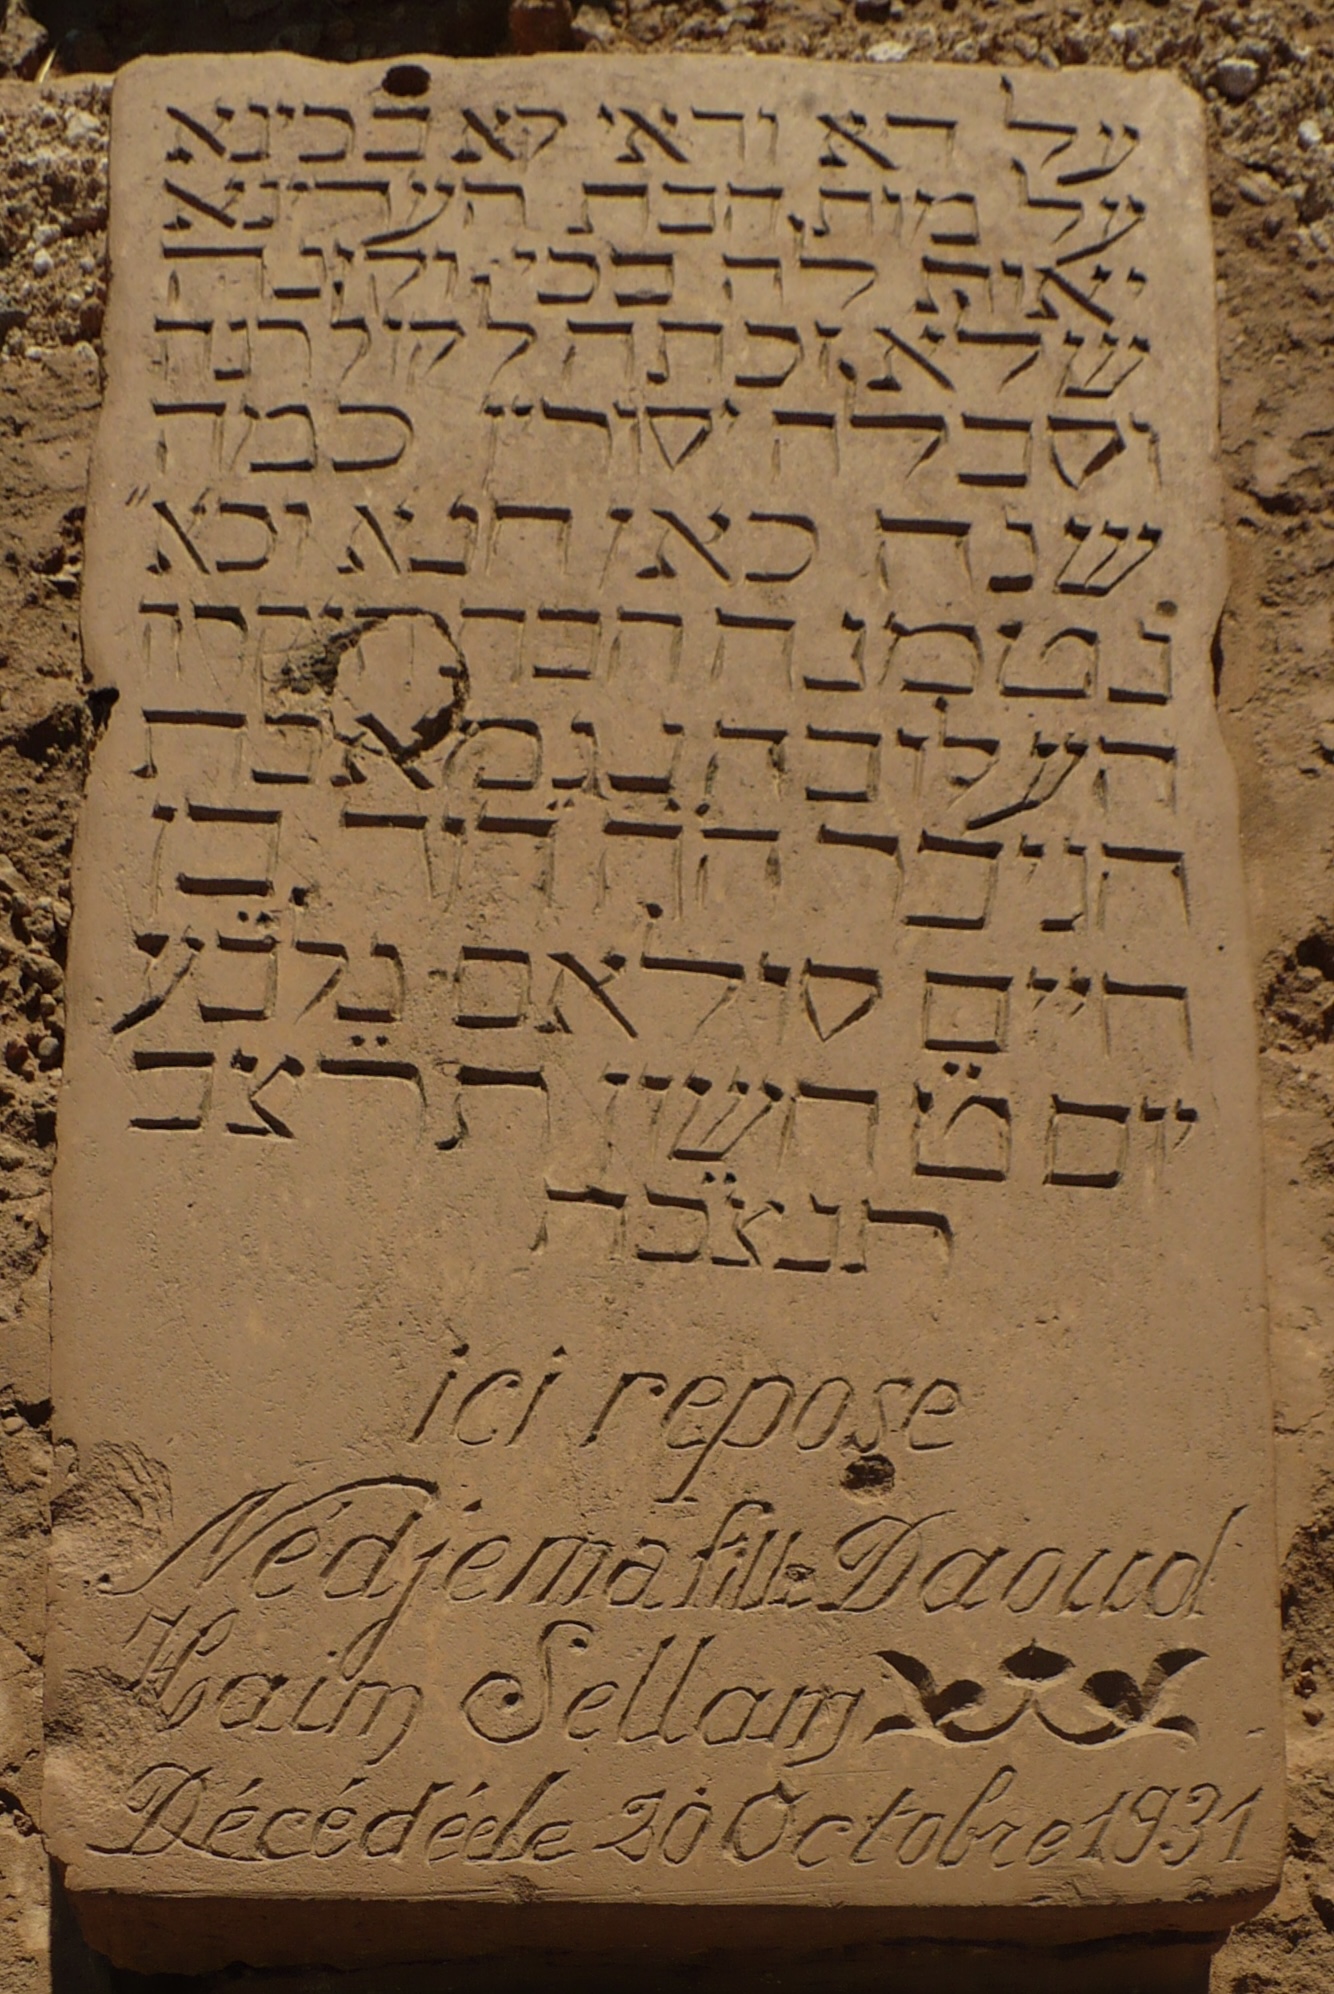 על דא ודאי קא בכינא
על מית הבת העדינא
יאות לה בכי וקינה
שלא זכתה לקול רנה
וסבלה יסורין כמה
שנה כאן חנא יכא״
נטמנה הבת היקרה
העלובה נגמאבת
הניבר הה דוד בן
חיים סולאם נלבע
יום ט חשון תרצב
תנצבה
ici repose
Nédjema fille Daoud
Haim Sellam
Décédée le 20 Octobre 1931